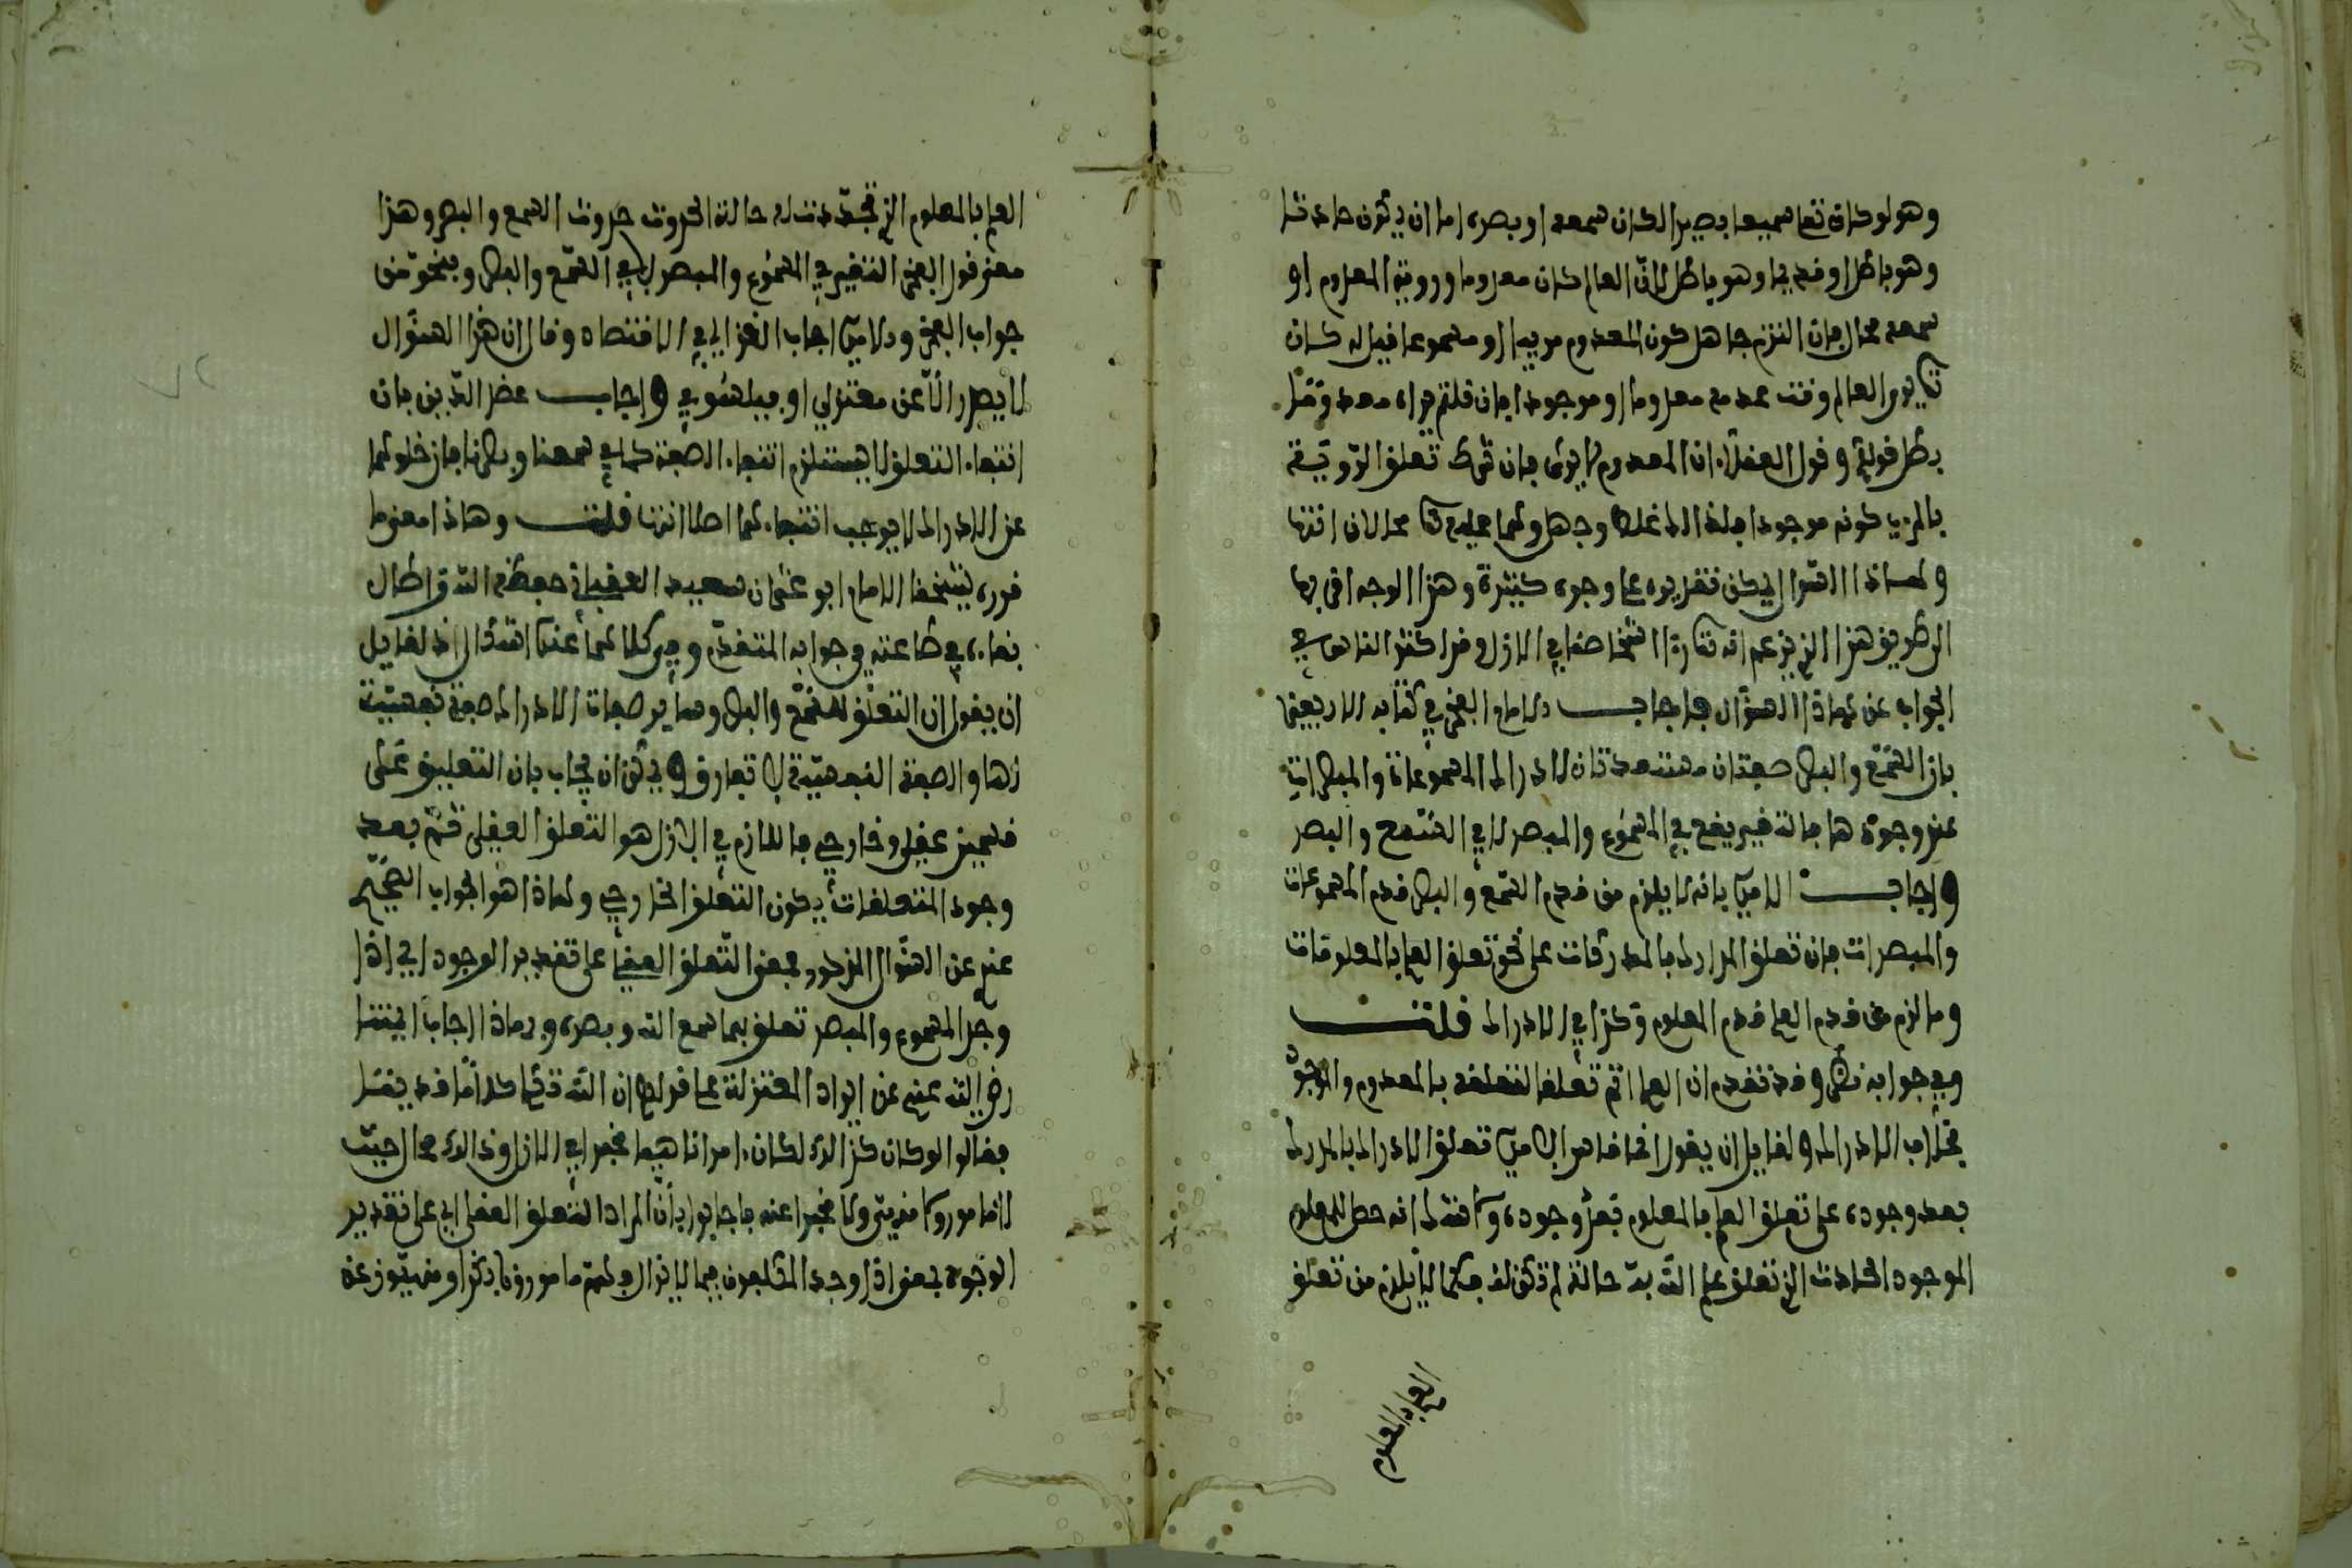 وهو لو كان تعا سميعا بصيرا لكان سمعه او بصره اما ان يكون حادثا
وهو باطل او قديما وهو باطل لان العالم كان معدوما ورؤية المعدوم او
سمعه محال فان التزم جاهل كون المعدوم مرييا او مسموعا قيل له كان
يرى العالم وقت عدمه معدوما او موجودا فان قلتم يراه معدوما
بطل قولكم وقول العقلاء ان المعدوم لا يرى فان شرط تعلق الرؤية
بالمري كونه موجودا فذلك غلط وجهل وهما عليه تعا محالان انتها
ولهاذا السؤال يمكن تقريره على وجوه كثيرة وهذا الوجه اقربها
الى طريق هذا الذي يزعم انه شخاصا في الازل وقد اكثر الناس في
الجواب عن هاذا السؤال فاجاب الامام الفخر في كتابه الاربعين
بان السمع والبصر صفتان مستعدتان لادراك المسموعات والمبصرات
عند وجودها فالتغير يقع في المسموع والمبصر لا في السمع والبصر
واجاب الامدي بانه لا يلزم من قدم السمع والبصر قدم المسموعات
والمبصرات فان تعلق الادراك بالمدركات على نحو تعلق العلم بالمعلومات
وما لزم من قدم العلم قدم المعلوم وكذا في الادراك قلت
وفي جوابه نظر وقد تقدم ان العلم اتم تعلقا لتعلقه بالمعدوم والموجود
بخلاف الادراك ولقايل ان يقول انما قاس الامدي تعلق الادراك بالمدرك
بعد وجوده على تعلق العلم بالمعلوم بعد وجوده ولا شك انه حصل للمعلوم
الموجود الحادث الذي تعلق علم الله به حالة لم تكن له فكما لا يلزم من تعلق
العلم بالمعلوم
العلم بالمعلوم الذي تجددت له حالة الحدوث حدوث السمع والبصر وهذا
معنى قول الفخر التغير في المسموع والمبصر لا في السمع والبصر وبنحو من
جواب الفخر والامدي اجاب الغزالي في الاقتصاد وقال ان هذا السؤال
لا يصدر الا عن معتزلي او فيلسوفي واجاب عضد الدين بان
انتفاء التعلق لا يستلزم انتفاء الصفة كما في سمعنا وبصرنا فان خلوهما
عن الادراك لا يوجب انتفاءهما اصلا انتها قلت وهاذا معنى ما
قرره شيخنا الامام ابو عثمان سعيد العقباني حفظه الله واطال
بقاءه في طاعته في جوابه المتقدم وفي كلامهما عندي اشكال اذ لقايل
ان يقول ان التعلق للسمع والبصر وساير صفات الادراك صفة نفسية
لها والصفة النفسية لا تفارق ويمكن ان يجاب بان التعليق على
قسمين عقلي وخارجي فاللازم في الازل هو التعلق العقلي ثم بعد
وجود المتعلقات يكون التعلق الخارجي وهاذا هو الجواب الصحيح
عندي عن السؤال المذكور ومعنى التعلق العقلي على تقدير الوجود اي اذا
وجد المسموع والمبصر تعلق بهما سمع الله وبصره وبهاذا اجاب ايمتنا
رضي الله عنهم عن ايراد المعتزلة على قولهم ان لله تعا كلاما قديما
فقالوا لو كان كذالك لكان امرا ناهيا مخبرا في الازل وذالك محال حيث
لا مامور ولا منهي ولا مخبرا عنه فاجابوا بان المراد التعلق العقلي اي على تقدير
الوجود بمعنى اذا وجد المكلفون فيما لا يزال فهم مامورون بذكر او منهيون عنه